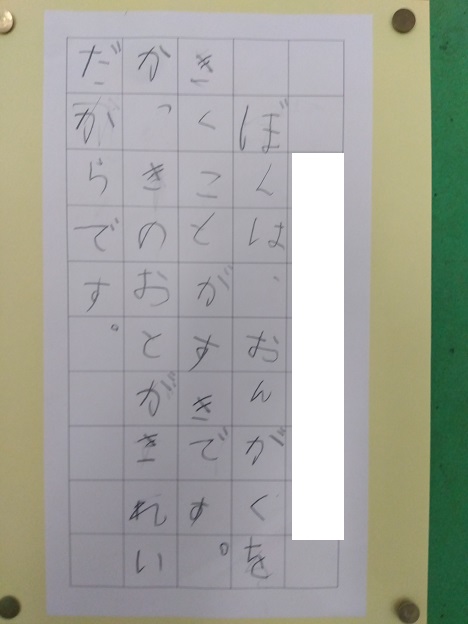 ぼくは、おんがくを
きくことがすきです。
がっきのおとがきれい
だがらです。